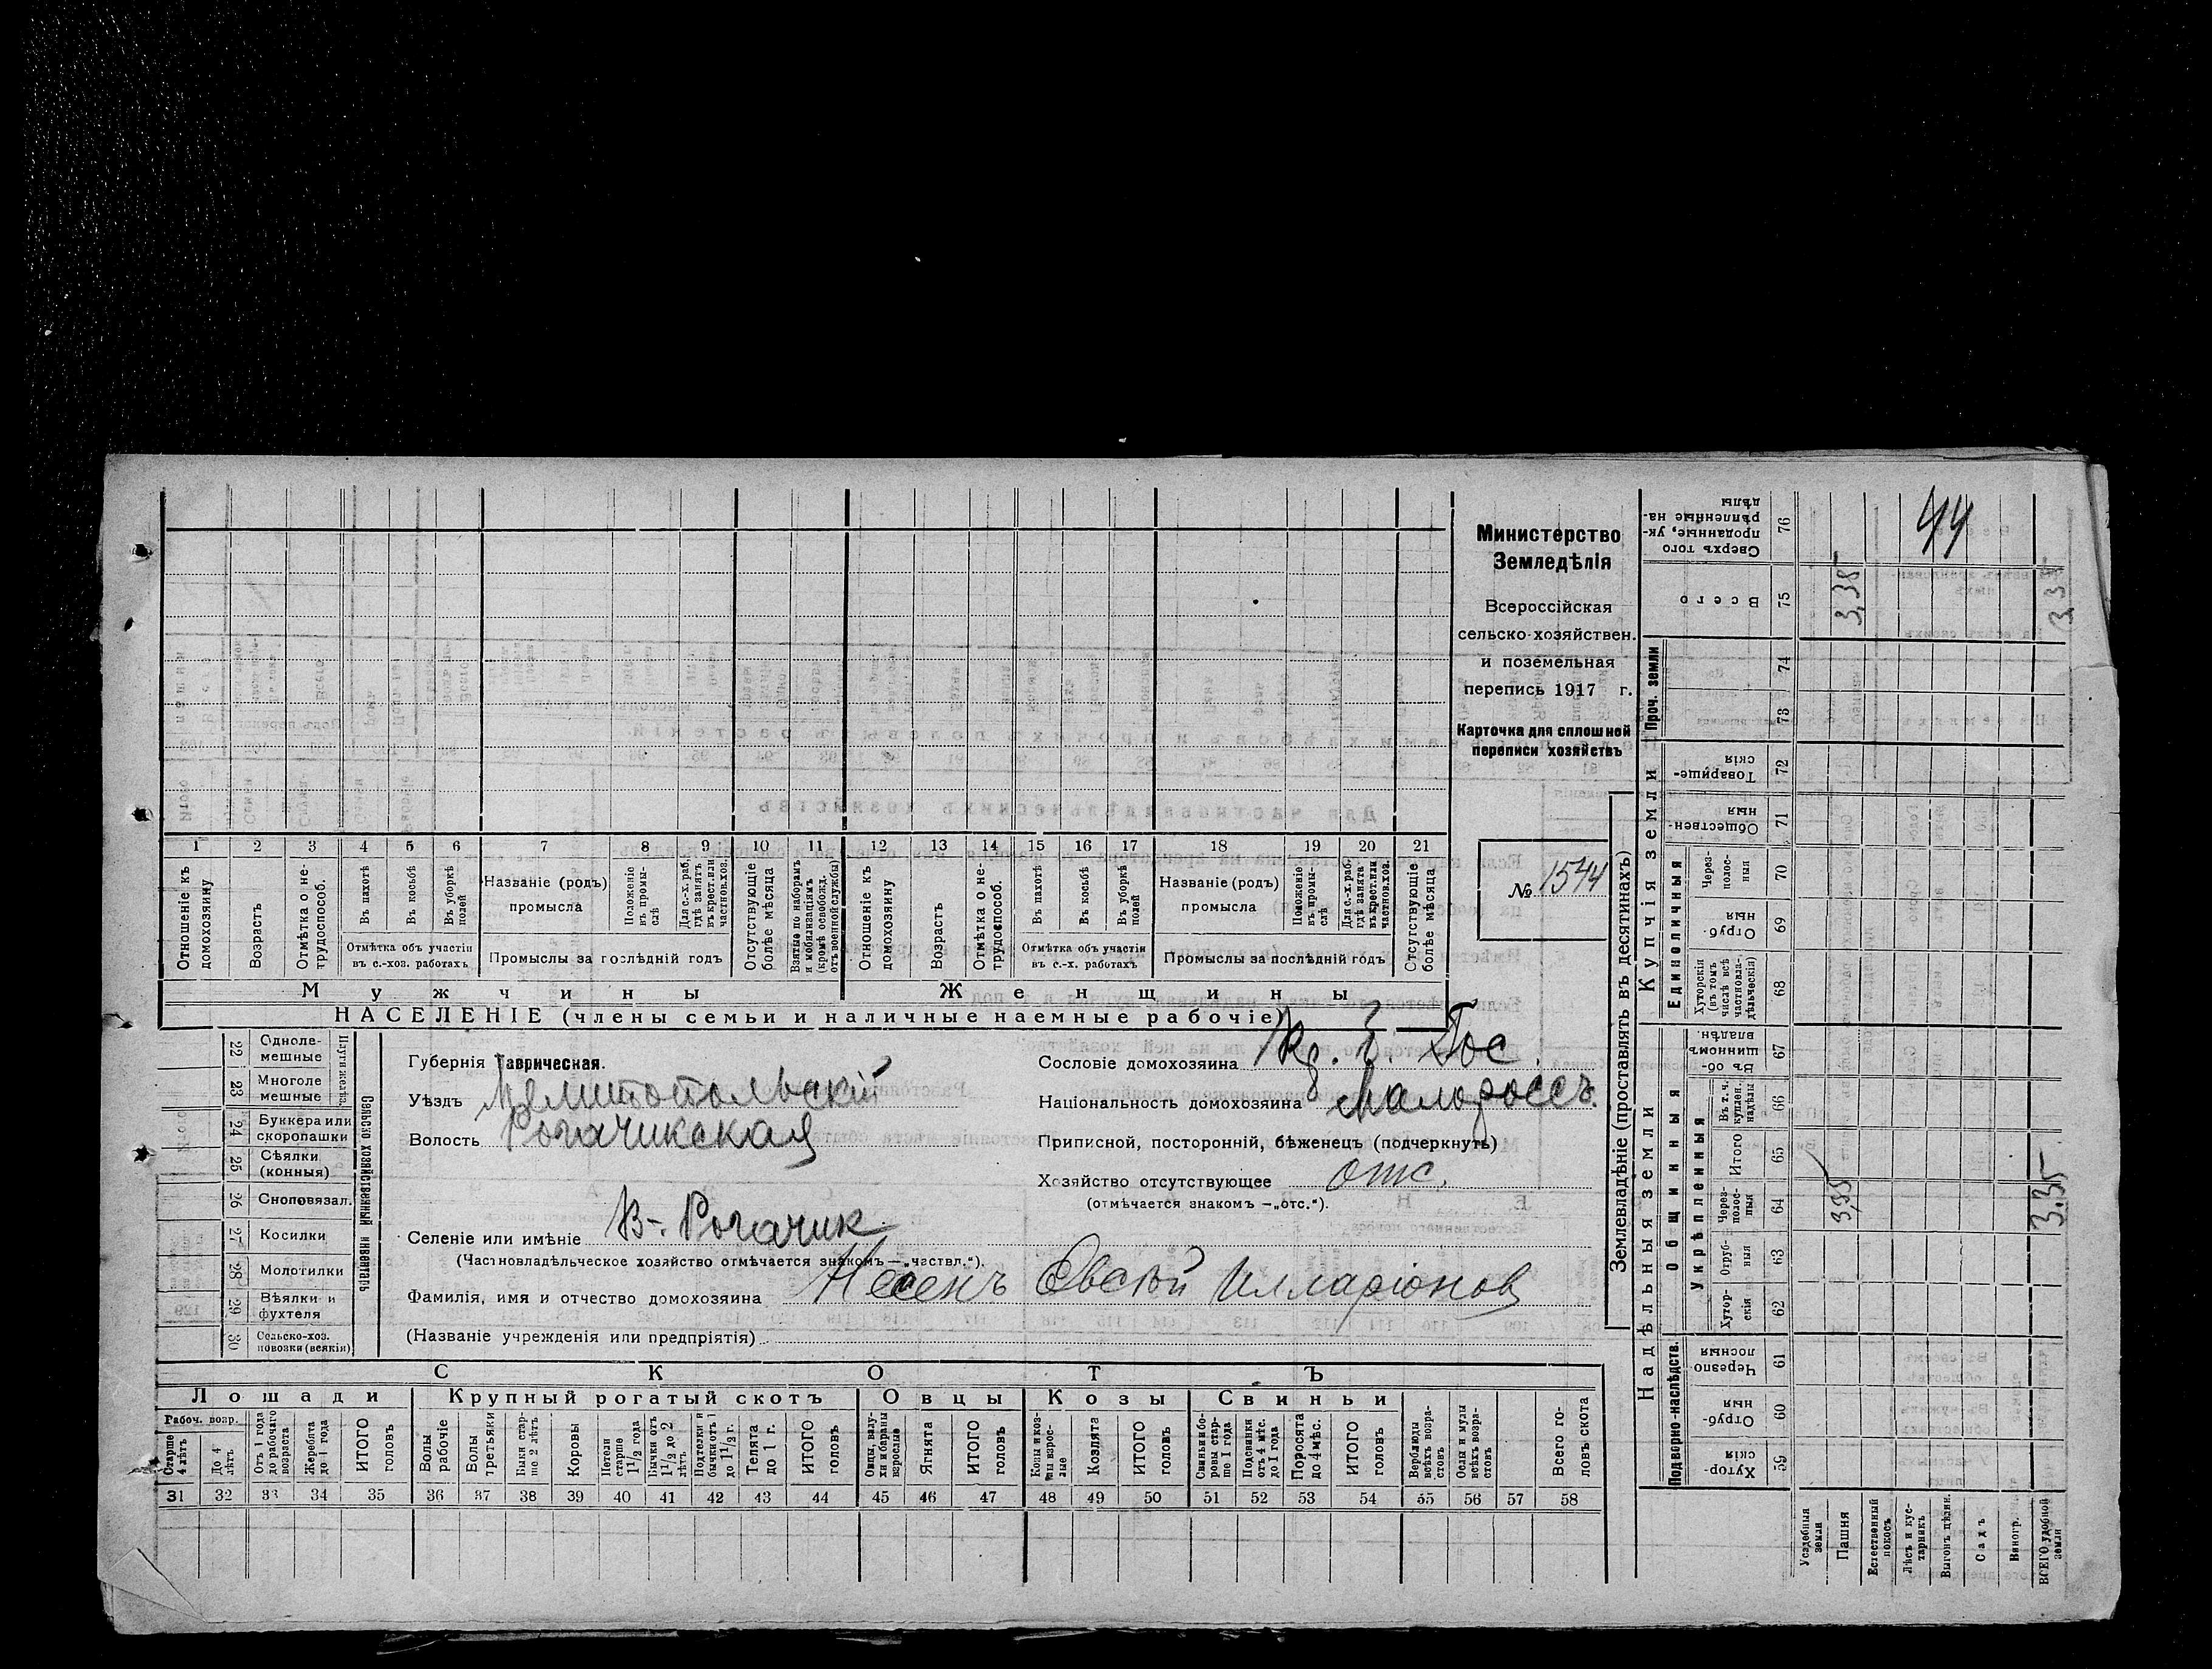 Министерство
Земледѣлія
Всероссійская
сельско-хозяйствен.
и поземельная
перепись 1917 г.
Карточка для сплошной
переписи хозяйствъ
№ 1544
44
1 2 3 4 5 6 7 8 9 10 11 12 13 14 15 16 17 18 19 20 21
Отношеніе къ домохозяину
Возрастъ
Отмѣтка о не-трудоспособ.
Въ пахотѣ
Въ косьбѣ
Въ уборкѣ полей
Отмѣтка объ участіи въ с.-хоз. работахъ
Названіе (родъ) промысла
Положеніе въ промы-слѣ
Для с.-х. раб. гдѣ занятъ въ крест. или частнов. хоз.
Промыслы за послѣдній годъ
Отсутствующіе болѣе мѣсяца
Взятые по наборамъ и мобилизаціямъ (кромѣ освобожд. отъ военной службы)
Отношеніе къ домохозяину
Возрастъ
Отмѣтка о не-трудоспособ.
Въ пахотѣ
Въ косьбѣ
Въ уборкѣ полей
Отмѣтка объ участіи въ с.-х. работахъ
Названіе (родъ) промысла
Положеніе въ промы-слѣ
Для с.-х. раб. гдѣ занята въ крест. или частнов. хоз.
Промыслы за послѣдній годъ
Отсутствующіе болѣе мѣсяца
Мужчины Женщины
НАСЕЛЕНІЕ (члены семьи и наличные наемные рабочіе)
Сельско хозяйственный инвентарь
22 Одноле-мешные
23 Многоле мешные
24 Буккера или скоропашки
25 Сѣялки (конныя)
26 Сноповязал.
27 Косилки
28 Молотилки
29 Вѣялки и фухтеля
30 Сельско-хоз. повозки (всякія)
Губернія Таврическая.
Уѣздъ Мелитопольскій
Волость Рогачикская
Селеніе или имѣніе В-. Рогачик
(Частновладѣльческое хозяйство отмѣчается знакомъ—„частвл.“).
Фамилія, имя и отчество домохозяина Несенъ Евсѣй Илларіонов
(Названіе учрежденія или предпріятія)
Сословіе домохозяина Кр. б. Гос.
Національность домохозяина малороссъ.
Приписной, посторонній, бѣженец (подчеркнуть)
Хозяйство отсутствующее отс.
(отмѣчается знакомъ—„отс.“).
СКОТЪ
Лошади Крупный рогатый скотъ Овцы Козы Свиньи
Рабоч. возр.
Старше 4 лѣтъ
До 4 лѣтъ
Отъ 1 года до рабочаго возраста
Жеребята до 1 года
ИТОГО головъ
Волы рабочіе
Волы третьяки
Быки стар-ше 2 лѣтъ
Коровы
Нетели старше 1 1/2 года
Бычки отъ 1 1/2 до 2 лѣтъ
Подтелки и бычки отъ 1 до 1 1/2 г.
Телята до 1 г.
ИТОГО головъ
Овцы, валу-хи и бараны взрослые
Ягнята
ИТОГО головъ
Козы и коз-лы взрос-лые
Козлята
ИТОГО головъ
Свиньи и бо-ровы стар-ше 1 года
Подсвинки отъ 4 мѣс. до 1 года
Поросята до 4 мѣс.
ИТОГО головъ
Верблюды всѣхъ возра-стовъ
Ослы и мулы всѣхъ возра-стовъ
Всего го-ловъ скота
31 32 33 34 35 36 37 38 39 40 41 42 43 44 45 46 47 48 49 50 51 52 53 54 55 56 57 58
Землевладѣніе (проставлять въ десятинахъ)
Надѣльныя земли Купчія земли Проч. земли
Подворно-наслѣдств. Общинныя Единоличныя
Укрѣпленныя
Хутор-скія 59
Отруб-ныя 60
Черезпо лосныя 61
Хутор-скія 62
Отруб-ныя 63
Через-полос-ныя 64
Итого 65
Въ т. ч. куплен. надѣлы 66
Въ об-щинномъ владѣн. 67
Хуторскія (въ томъ числѣ всѣ частновла-дѣльческія) 68
Отруб-ныя 69
Через-полос-ныя 70
Обществен-ныя 71
Товарище-скія 72
73
74
Всего 75
Сверхъ того проданные, ук-рѣпленные на-дѣлы 76
Усадебныя земли
Пашня 3,35 3,35
Естественный покосъ
Лѣсъ и кус-тарникъ
Выгонъ цѣлин.
Садъ
Виногр.
ВСЕГО удобной земли 3.35 3.3